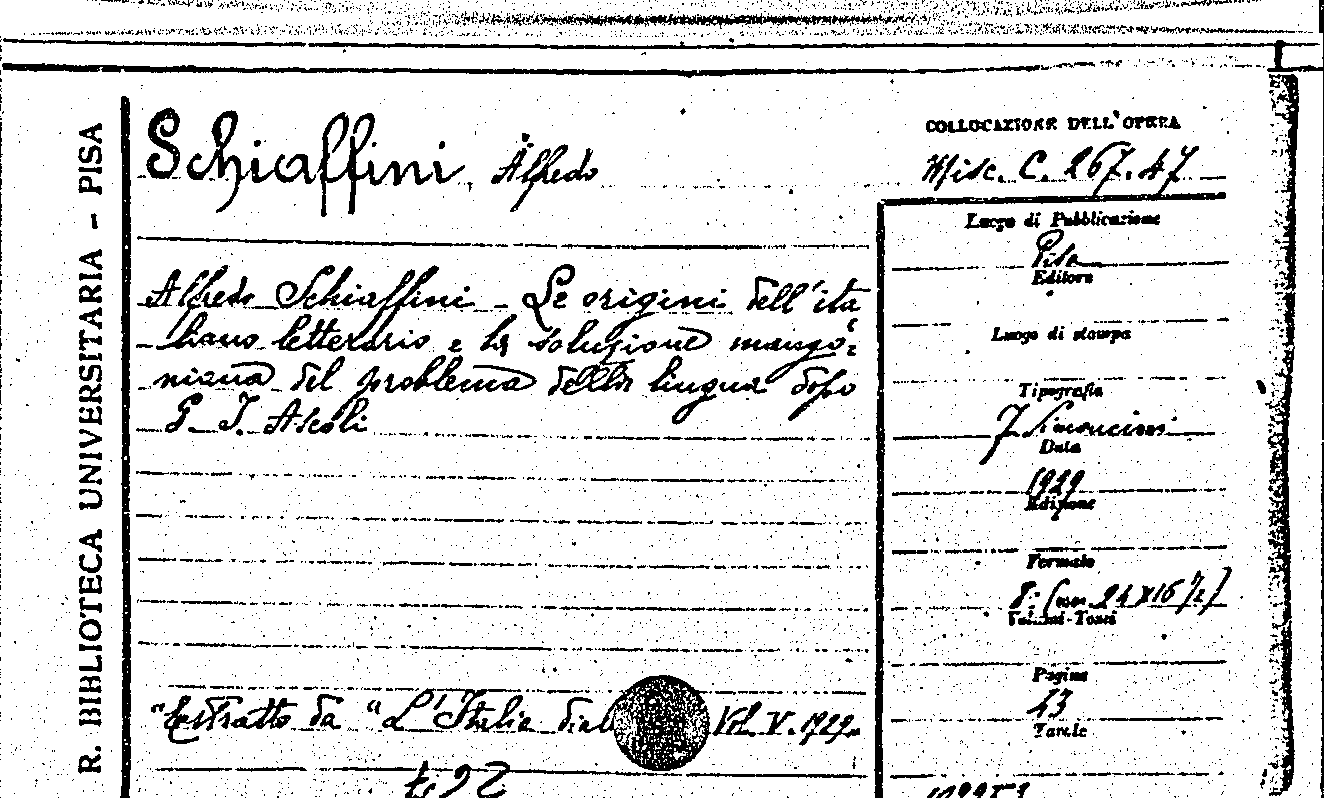 R. BIBLIOTECA UNIVERSITARIA - PISA
Schiaffini, Alfredo
Alfredo Schiaffini - Le origini dell'ita
liano letterario e la soluzione manzo=
niana del problema della lingua dopo
G. I. Ascoli
"Estratto da "L'Italia dial Vol. V. 1929.
264
COLLOCAZIONE DELL'OPERA
Misc. C. 267.47
Luogo di Pubblicazione
Pisa
Editore
Luogo di stampa
Tipografia
F. Simoncini
Data
1929
Edizione
Formato
8: (cm 24x16 1/2)
Volumi-Tomi
Pagine
43
Tavole